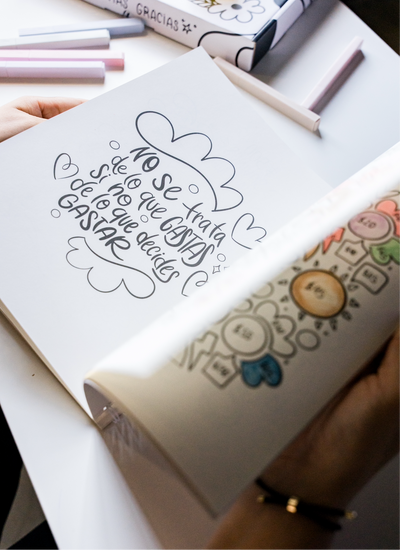 GRACIAS
NO se trata
de lo que GASTAS
si no que
de lo que decides
GASTAR